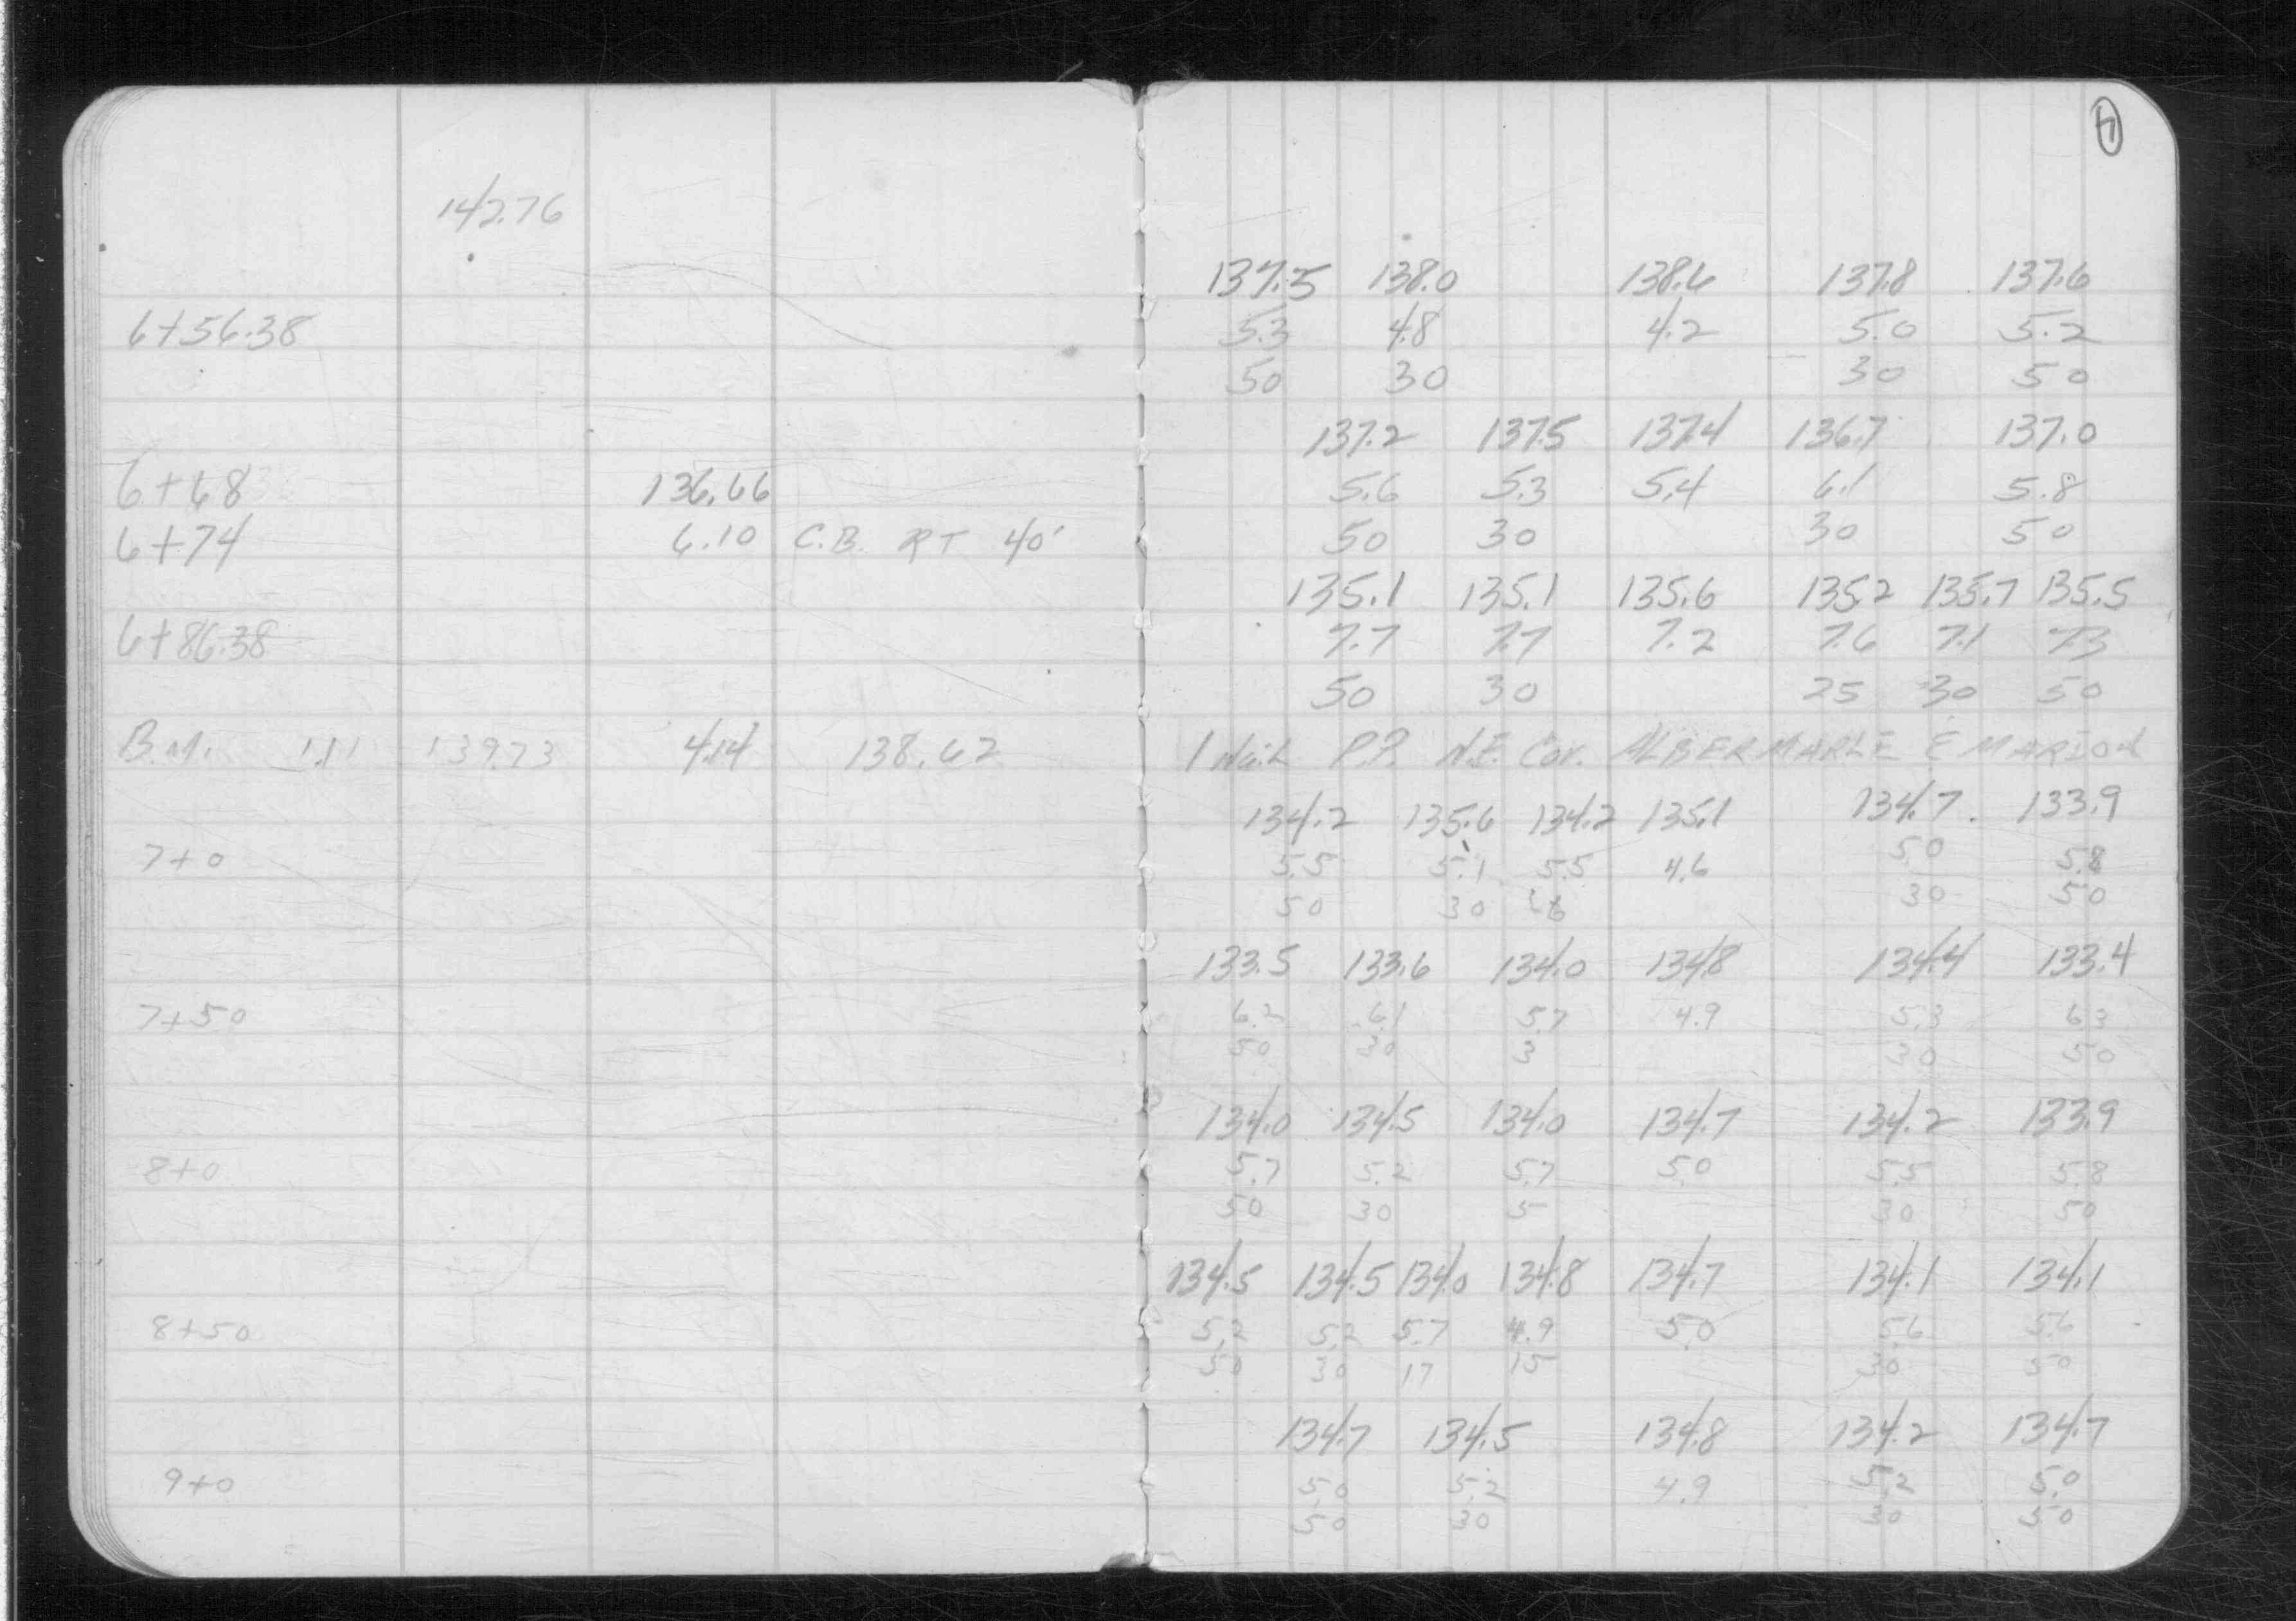 7
142.76
137.5 138.0 138.6 137.8 137.6
6+56.38 5.3 4.8 4.2 5.0 5.2
50 30 30 50
137.2 137.5 137.4 136.7 137.0
6+68 136.66 5.6 5.3 5.4 6.1 5.8
6+74 6.10 C.B. RT 40' 50 30 30 50
135.1 135.1 135.6 135.2 135.7 135.5
6+86.38 7.7 7.7 7.2 7.6 7.1 7.3
50 30 25 30 50
B.M. 1.11 139.73 4.14 138.62 1 Nail P.P. N.E. Cor. ALBERMARLE & MARION
134.2 135.6 134.2 135.1 134.7 133.9
7+0 5.5 5.1 5.5 4.6 5.0 5.8
50 30 30 50
133.5 133.6 134.0 134.8 134.4 133.4
7+50 6.2 6.1 5.7 4.9 5.3 6.3
50 30 3 30 50
134.0 134.5 134.0 134.7 134.2 133.9
8+0 5.7 5.2 5.7 5.0 5.5 5.8
50 30 5 30 50
134.5 134.5 134.0 134.8 134.7 134.1 134.1
8+50 5.2 5.2 5.7 4.9 5.0 5.6 5.6
50 30 17 15 30 50
134.7 134.5 134.8 134.2 134.7
9+0 5.0 5.2 4.9 5.2 5.0
50 30 30 50